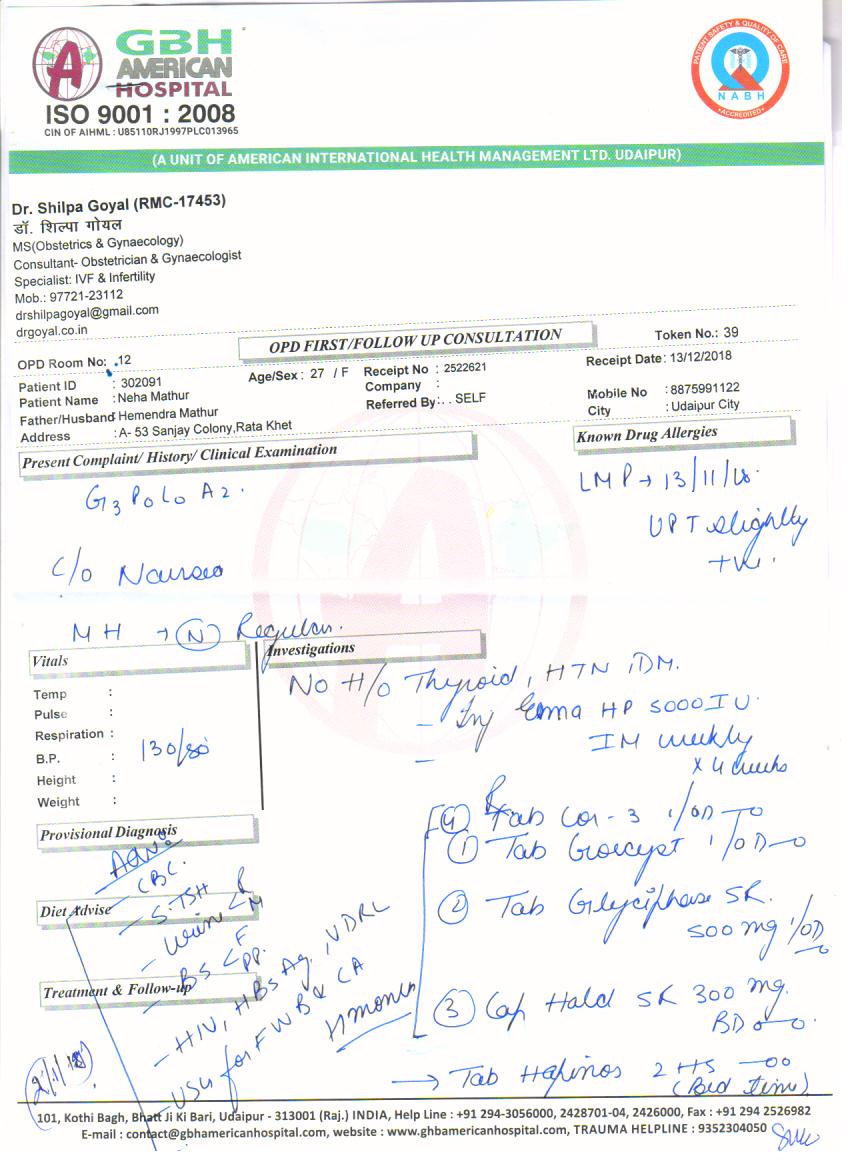 GBH
AMERICAN
HOSPITAL
ISO 9001 : 2008
CIN OF AIHML : U85110RJ1997PLC013965
PATIENT SAFETY & QUALITY OF CARE
NABH
ACCREDITED
(A UNIT OF AMERICAN INTERNATIONAL HEALTH MANAGEMENT LTD. UDAIPUR)
Dr. Shilpa Goyal (RMC-17453)
डॉ. शिल्पा गोयल
MS(Obstetrics & Gynaecology)
Consultant- Obstetrician & Gynaecologist
Specialist: IVF & Infertility
Mob.: 97721-23112
drshilpagoyal@gmail.com
drgoyal.co.in
OPD FIRST/FOLLOW UP CONSULTATION
Token No.: 39
OPD Room No: 12
Receipt Date: 13/12/2018
Patient ID : 302091
Age/Sex : 27 / F
Receipt No : 2522621
Patient Name : Neha Mathur
Company :
Mobile No : 8875991122
Father/Husband Hemendra Mathur
Referred By: . . SELF
City : Udaipur City
Address : A- 53 Sanjay Colony,Rata Khet
Present Complaint/ History/ Clinical Examination
Known Drug Allergies
G3 P0 L0 A2.
LMP → 13/11/18.
UPT slightly
+ve.
C/o Nausea
MH → (N) Regular.
Vitals
Investigations
Temp :
Pulse :
Respiration :
B.P. : 130/80
Height :
Weight :
No H/o Thyroid, HTN, DM.
- Inj HP 5000 IU.
IM weekly
x 4 weeks
Provisional Diagnosis
(4) Tab Cor-3 1/OD
(1) Tab 1/OD
(2) Tab Glyciphase SR
500 mg 1/OD
(3) Cap Hald SR 300 mg.
BD
→ Tab 2 HS
(Bed time)
Adv:
- CBC.
Diet Advise
- S.TSH
- Urine R M
- BS F PP.
Treatment & Follow-up
- HIV, HBsAg, VDRL
- USG for FWB & CA
101, Kothi Bagh, Bhatt Ji Ki Bari, Udaipur - 313001 (Raj.) INDIA, Help Line : +91 294-3056000, 2428701-04, 2426000, Fax : +91 294 2526982
E-mail : contact@gbhamericanhospital.com, website : www.ghbamericanhospital.com, TRAUMA HELPLINE : 9352304050